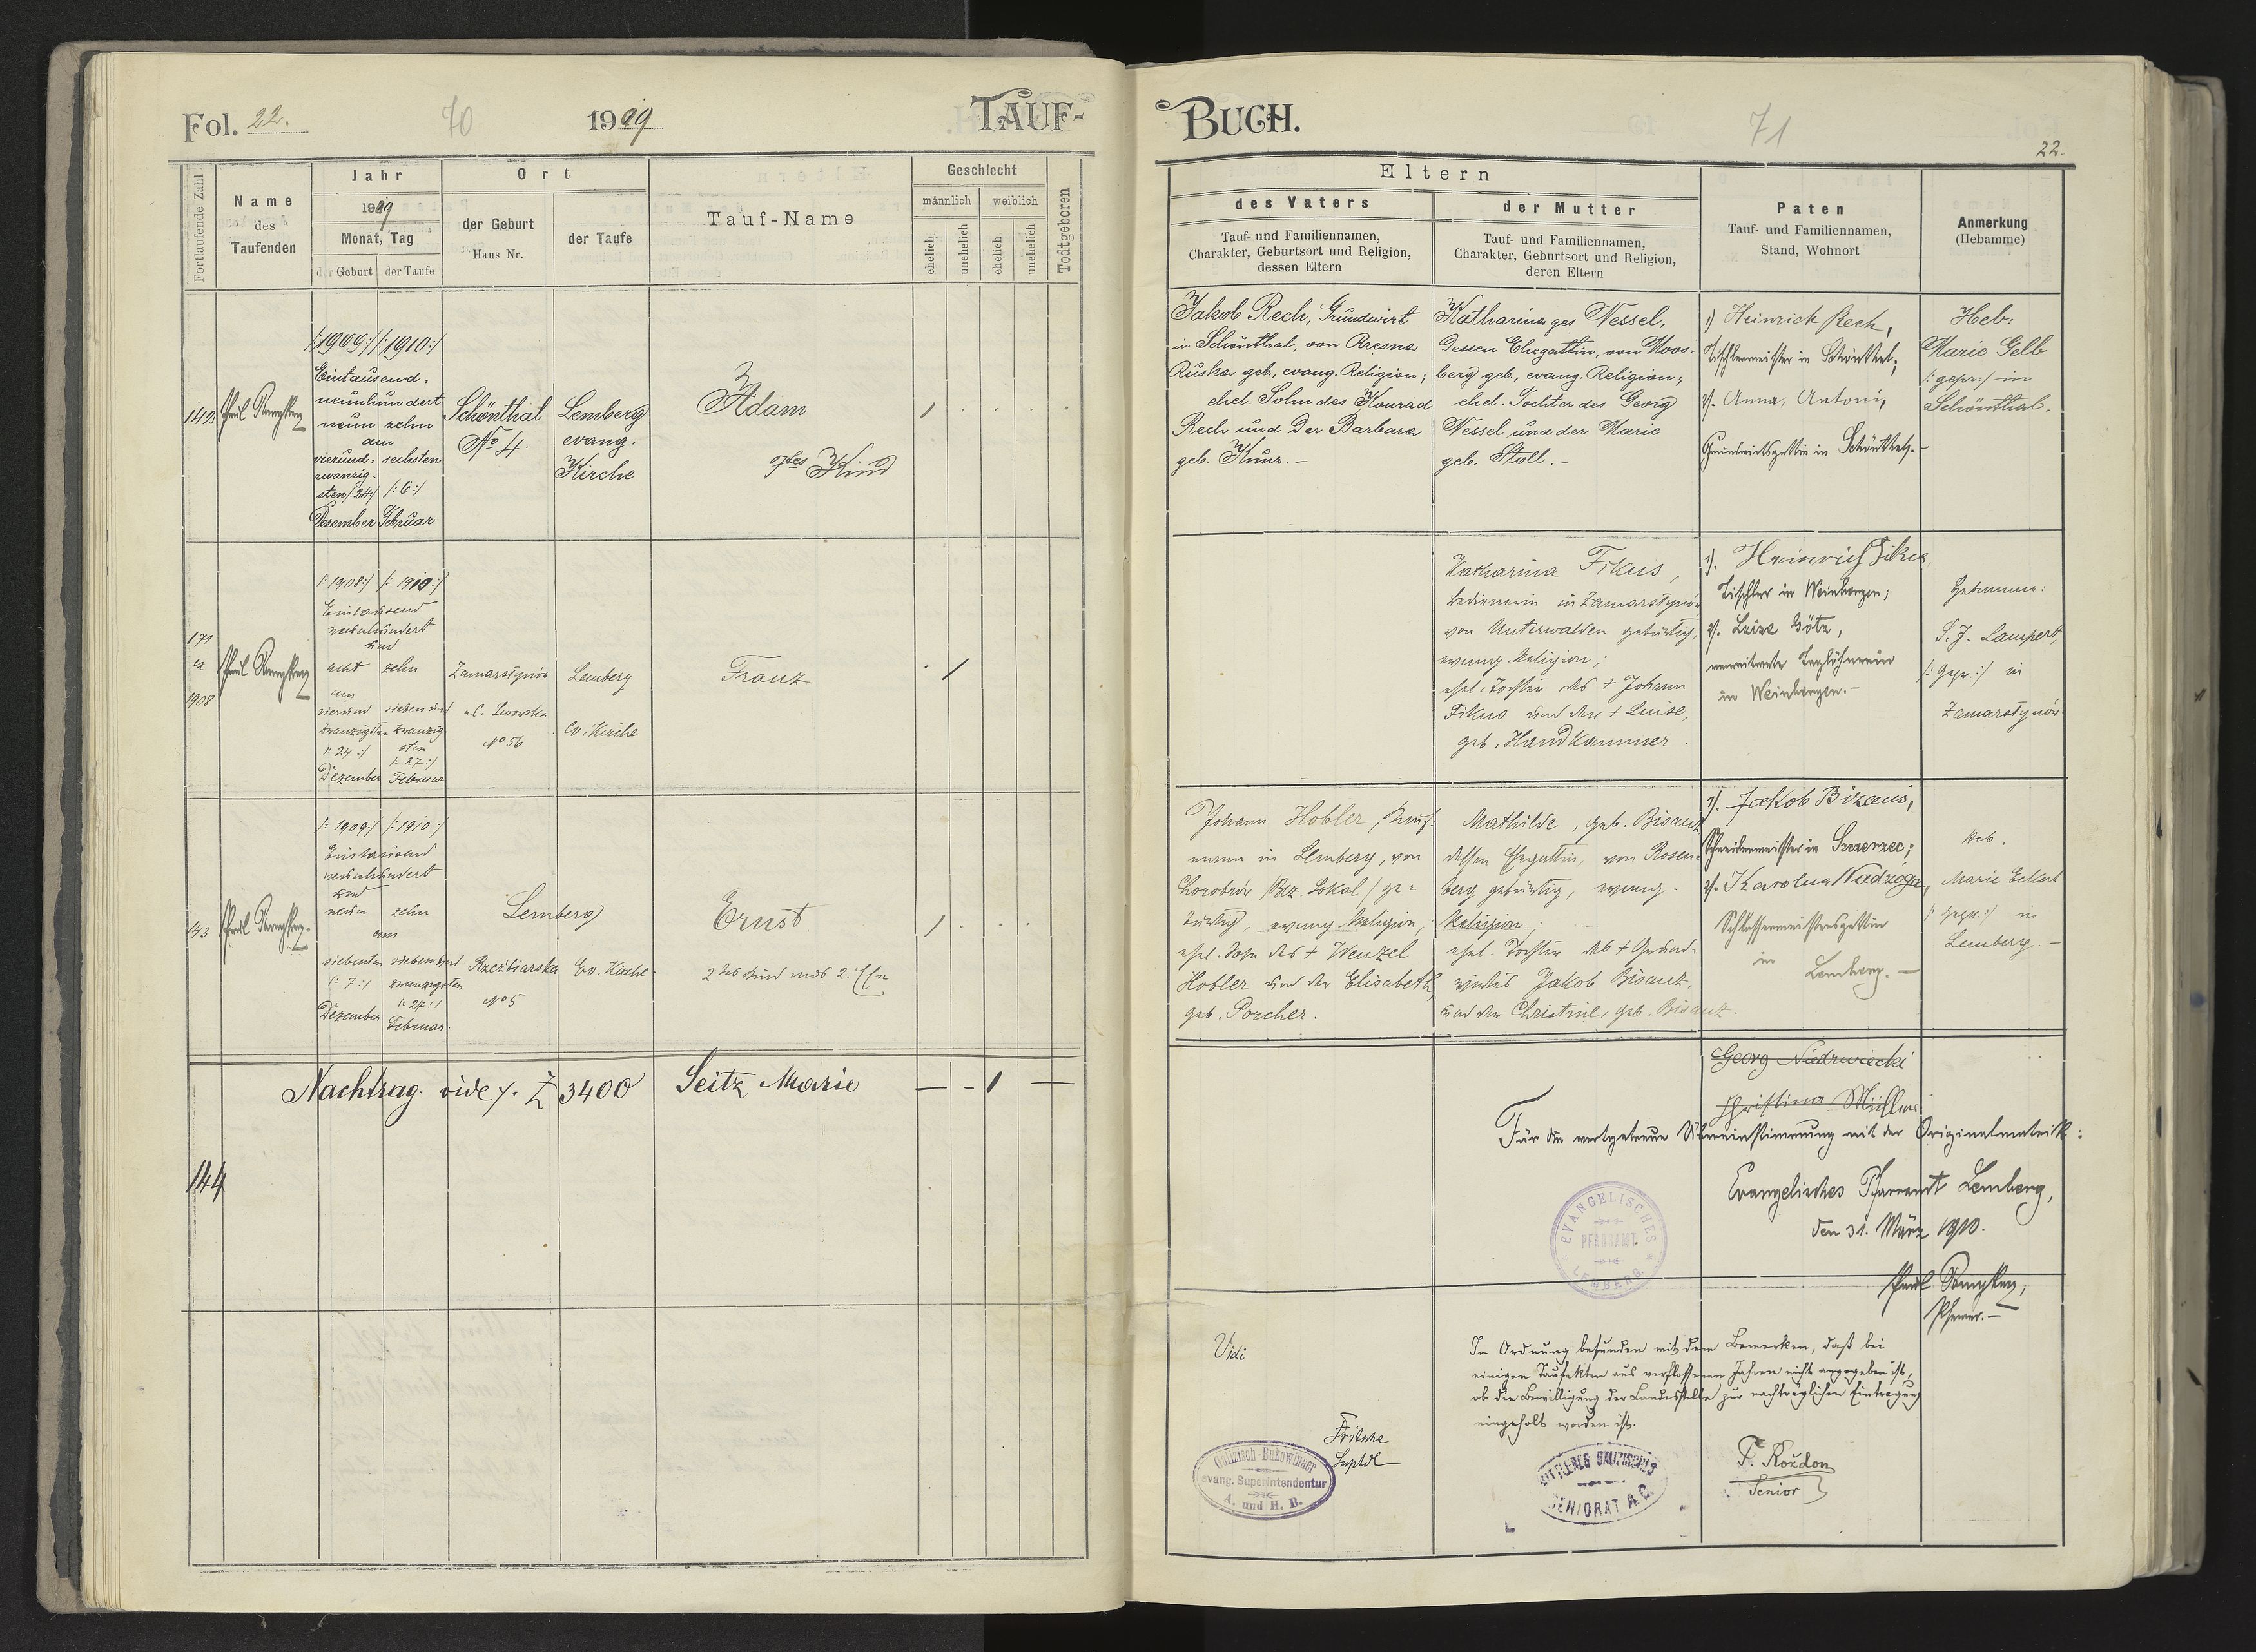 Fol. 22.
70
1909
TAUF-
Fortlaufende Zahl
Name
des
Taufenden
Jahr
1909
Monat, Tag
der Geburt
der Taufe
Ort
der Geburt
Haus Nr.
der Taufe
Tauf-Name
Geschlecht
männlich
weiblich
ehelich
unehelich
ehelich
unehelich
Todtgeboren
142
/:1909:/ /:1910:/
Eintausend-
neunhundert
neun zehn
am
vierund- sechsten
zwanzig-
sten /:24/ /:6:/
Dezember Februar
Schönthal
No 4.
Lemberg
evang.
Kirche
Adam
Kind
171
1908
/:1908:/ /:1910:/
Eintausend
neunhundert
und
acht zehn
am
vierund siebenund
zwanzigsten zwanzig
sten
/:24:/ /:27:/
Dezember Februar
Zamarstynów
ul. Lwowska
No 56
Lemberg
Ev. Kirche
Franz
143
/:1909:/ /:1910:/
Eintausend
neunhundert
und
neun zehn
am
siebenten siebenund
/:7:/ zwanzigsten
/:27:/
Dezember Februar.
Lemberg
Rzeźbiarska
No 5
Ev. Kirche
Ernst
2tes Kind aus 2. Ehe
Nachtrag. vide Z 3400
Seitz Marie
144
BUCH.
71
22.
Eltern
des Vaters
Tauf- und Familiennamen,
Charakter, Geburtsort und Religion,
dessen Eltern
der Mutter
Tauf- und Familiennamen,
Charakter, Geburtsort und Religion,
deren Eltern
Paten
Tauf- und Familiennamen,
Stand, Wohnort
Anmerkung
(Hebamme)
Jakob Rech, Grundwirt
in Schönthal, von Rzęsna
Ruska geb., evang. Religion;
ehel. Sohn des Konrad
Rech und der Barbara
geb. Kunz.-
Katharina geb Nessel,
dessen Ehegattin, von Moos-
berg geb., evang. Religion;
ehel. Tochter des Georg
Nessel und der Marie
geb. Stoll.-
1) Heinrich Rech,
Tischlermeister in Schönthal;
2/. Anna, Antoni,
Grundwirtsgattin in Schönthal.-
Heb:
Marie Gelb
/:gepr:/ in
Schönthal.
Katharina Fikus,
Bedienerin in Zamarstynów
von Unterwalden gebürtig,
evang. Religion;
ehel. Tochter des + Johann
Fikus und der + Luise,
geb. Handkammer.
1/. Heinrich Fikus
Tischler in Weinbergen;
2/. Luise Götz,
verwitwete Taglöhnerin
in Weinbergen.-
Hebamme:
S. J. Lampert,
/:gepr.:/ in
Zamarstynów
Johann Hobler, Kauf-
mann in Lemberg, von
Chorobrów /Bez. Sokal/ ge-
bürtig, evang. Religion,
ehel. Sohn des + Wenzel
Hobler und der Elisabeth,
geb. Porcher.
Mathilde, geb. Bisanz
dessen Ehegattin, von Rosen-
berg gebürtig, evang.
Religion;
ehel. Tochter des + Grund-
wirtes Jakob Bisanz,
und der Christine, geb. Bisanz.
1/. Jakob Bizanz,
Schneidermeister in Szczerzec;
2/. Karolina Nadzoga,
Schlossermeistersgattin
in Lemberg.-
Heb.
Marie Eckert
/:gepr.:/ in
Lemberg.-
Georg Niedzwiecki
Christina Müller
Für die wortgetreue Übereinstimmung mit der Originalmatrik:
Evangelisches Pfarramt Lemberg,
den 31. März 1910.
EVANGELISCHES
PFARRAMT
LEMBERG
Pfarrer.-
Vidi
In Ordnung befunden mit dem Bemerken, daß bei
einigen Taufakten aus verflossenen Jahren nicht angegeben ist,
ob die Bewilligung der Landesstelle zur nachträglichen Eintragung
eingeholt worden ist.
Fritsche
Suptdt
Galizisch-Bukowinaer
evang. Superintendentur
A. und H. B.
MITTLERES GALIZISCHES
SENIORAT A. C.
F. Rożdon
Senior